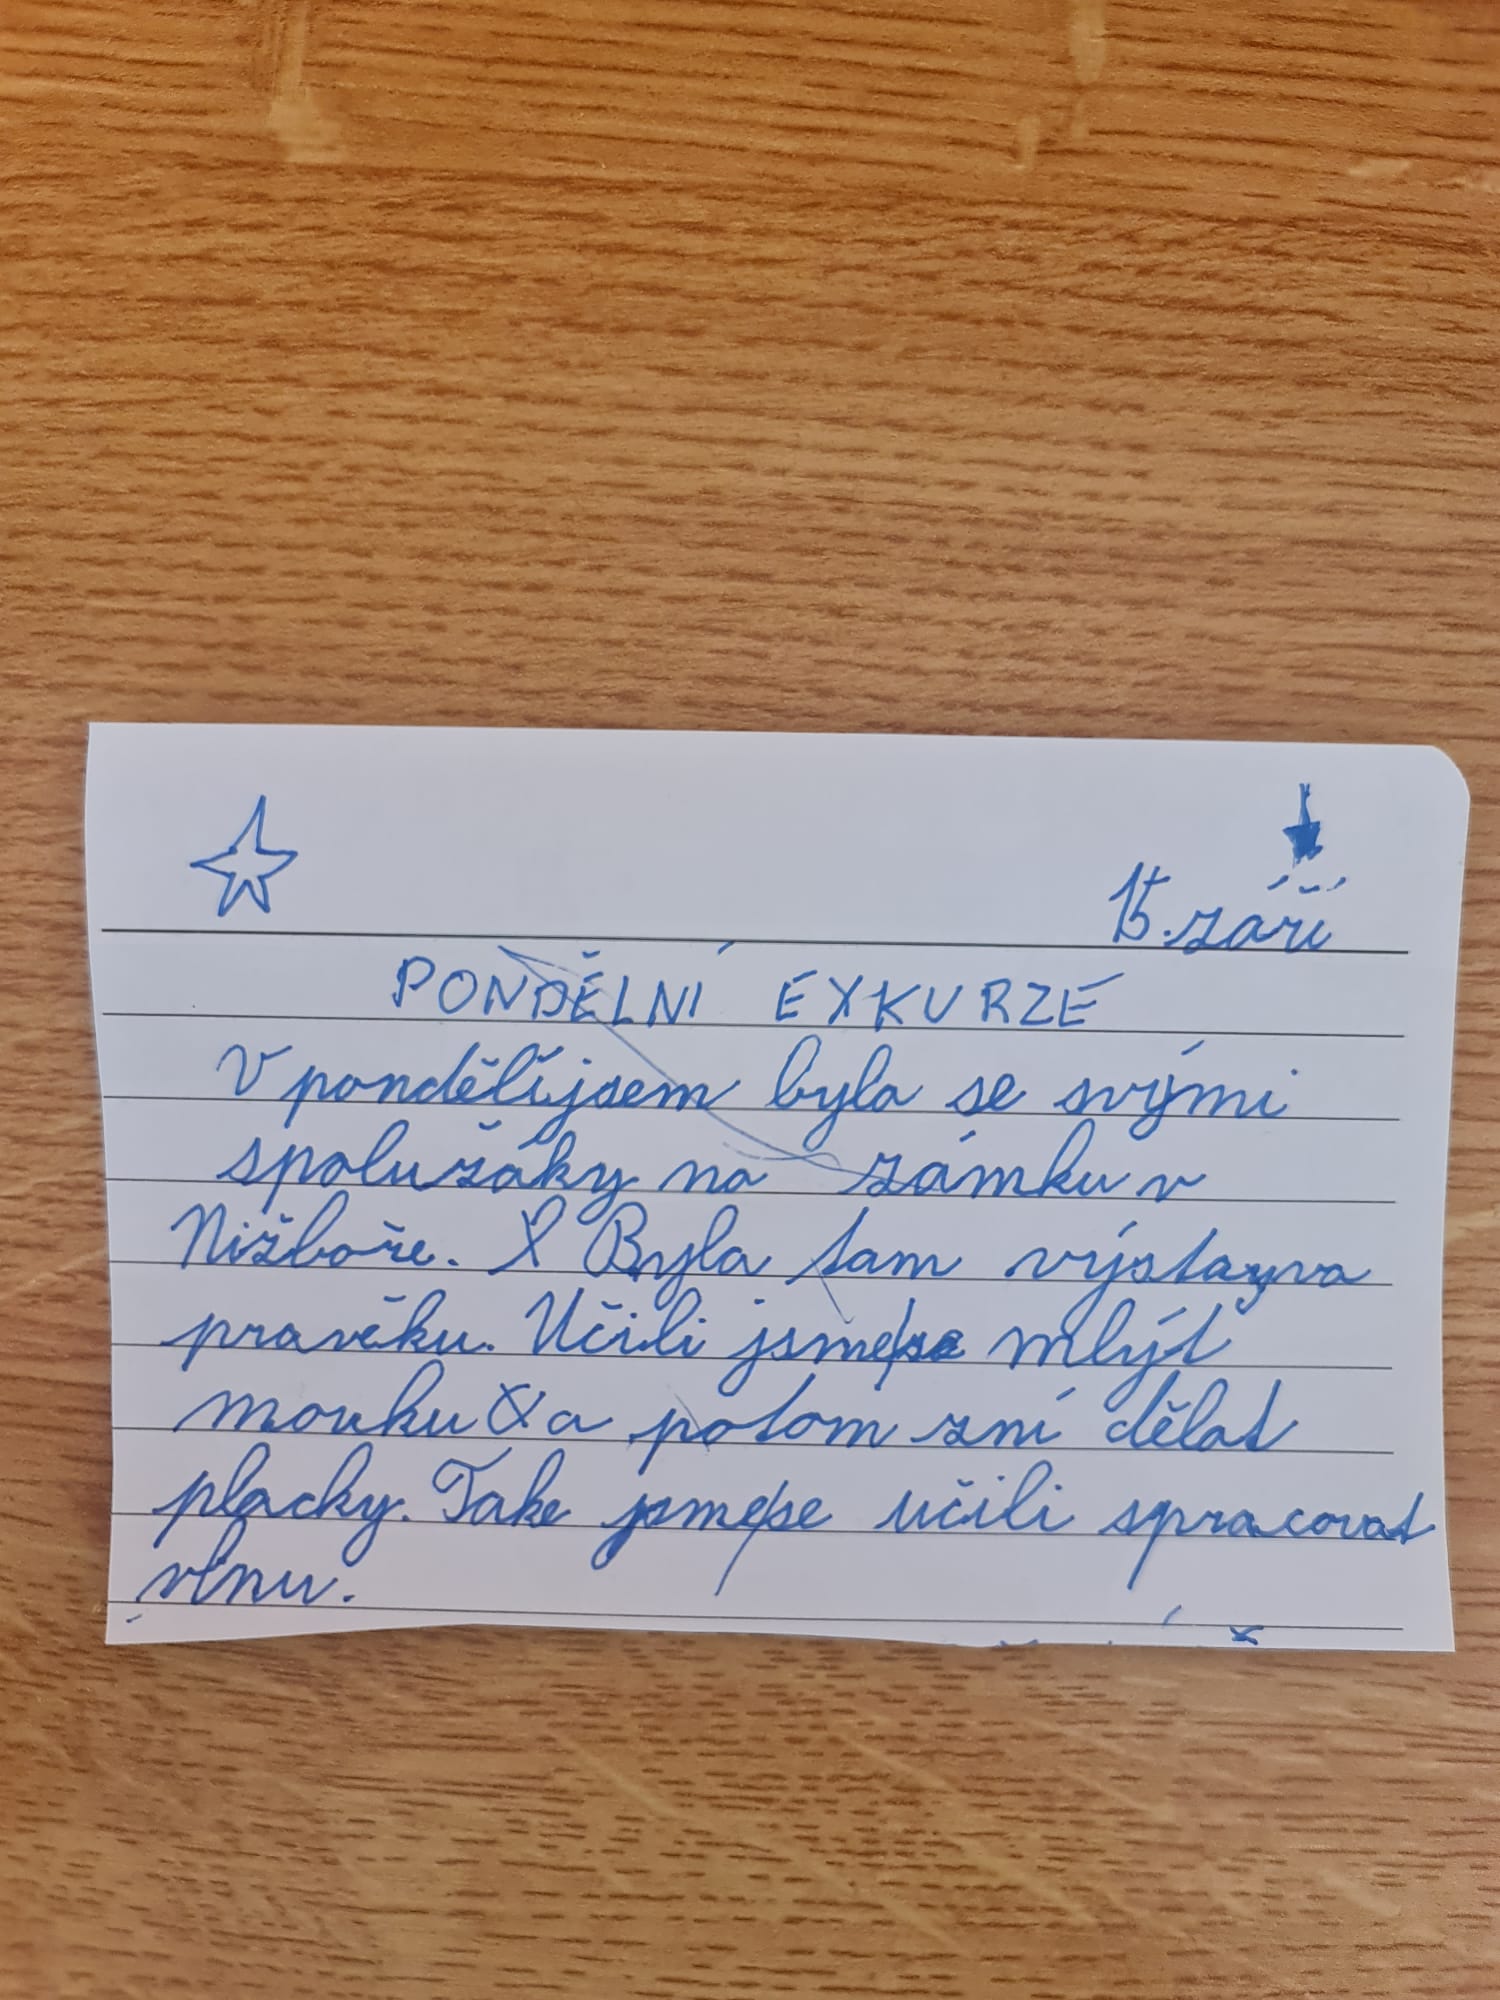 15. září
PONDĚLNÍ EXKURZE
V pondělí jsem byla se svými
spolužáky na zámku v
Nižboře. Byla tam výstava
pravěku. Učili jsme se mlýt
mouku a potom zní dělat
placky. Take jsme se učili spracovat
vlnu.